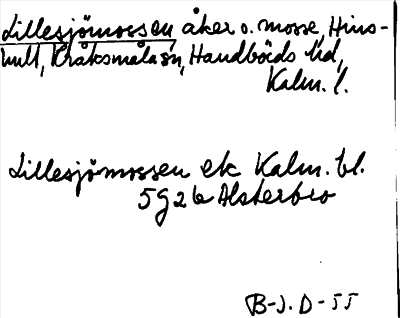 Lillesjömossen, åker o. mosse, Hins-
hult, Kråksmåla sn, Handbörds hd,
Kalm. l.
Lillesjömossen ek Kalm. bl.
5G2b Alsterbro
B-J. D-55